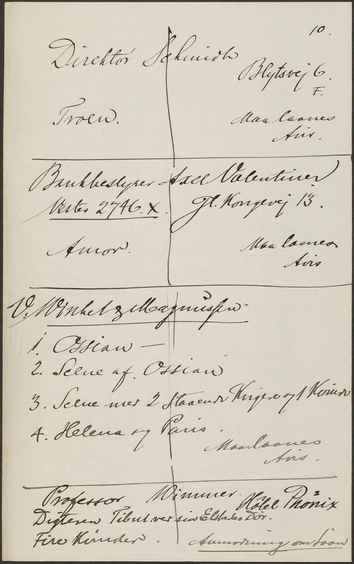 10.
Direktør Schmidt
Blytsvej 6.
F.
Troen.
Maa laanes
Avis.
Bankbestyrer Axel Valentiner
Vester 2746. x. Gl. Kongevej 13.
Amor.
Maa laanes
Avis
V. Winkel & Magnussen
1. Ossian —
2. Scene af Ossian
3. Scene med 2 staaende Kriger og 1 Kvinde
4. Helena og Paris.
Maa laanes
Avis.
Professor Wimmer Hôtel Phönix
Digteren Tibul ved sin Elskedes Dør.
Fire Kvinder.
Anmodning om Laan